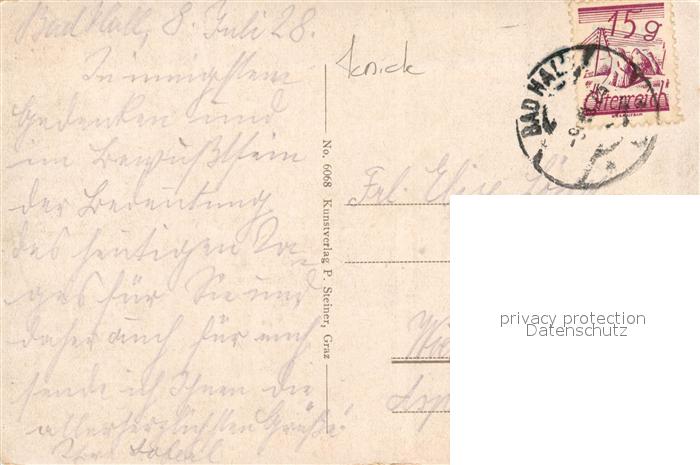 Bad Hall, 8. Juli 28.
In innigstem
Gedenken und
im Bewußtsein
der Bedeutung
des heutigen Ta-
ges für Sie und
daher auch für mich
sende ich Ihnen die
allerherzlichsten Grüße!
Ihr
No. 6068 Kunstverlag P. Steiner, Graz
Knick
15g
Österreich
BAD HALL
Frl. Elise
privacy protection
Datenschutz